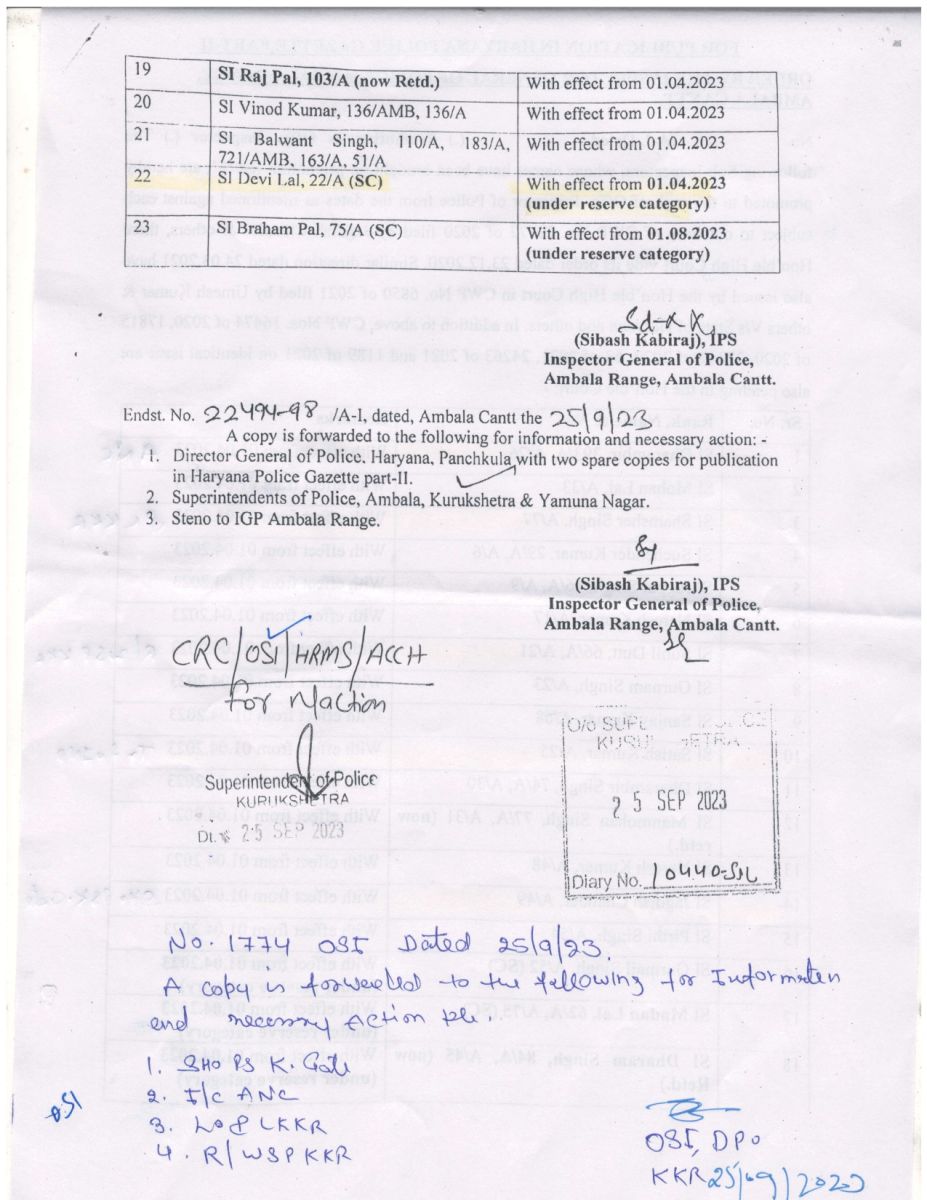 19 SI Raj Pal, 103/A (now Retd.) With effect from 01.04.2023
20 SI Vinod Kumar, 136/AMB, 136/A With effect from 01.04.2023
21 SI Balwant Singh, 110/A, 183/A, 721/AMB, 163/A, 51/A With effect from 01.04.2023
22 SI Devi Lal, 22/A (SC) With effect from 01.04.2023
(under reserve category)
23 SI Braham Pal, 75/A (SC) With effect from 01.08.2023
(under reserve category)
Sd-x x
(Sibash Kabiraj), IPS
Inspector General of Police,
Ambala Range, Ambala Cantt.
Endst. No. 22494-98 /A-I, dated, Ambala Cantt the 25/9/23
A copy is forwarded to the following for information and necessary action: -
1. Director General of Police, Haryana, Panchkula with two spare copies for publication
in Haryana Police Gazette part-II.
2. Superintendents of Police, Ambala, Kurukshetra & Yamuna Nagar.
3. Steno to IGP Ambala Range.
(Sibash Kabiraj), IPS
Inspector General of Police,
Ambala Range, Ambala Cantt.
CRC/OSI/HRMS/ACCH
for n/action
Superintendent of Police
KURUKSHETRA
Dt. 25 SEP 2023
O/o
25 SEP 2023
Diary No.
No. 1774 OSI Dated 25/9/23.
A copy is forwarded to the following for Information
and necessary Action
1. SHO PS K. Gate
2. I/c ANC
3. KKR
4. R/WSP KKR
OSI
OSI, DPO
KKR 25/09/2023